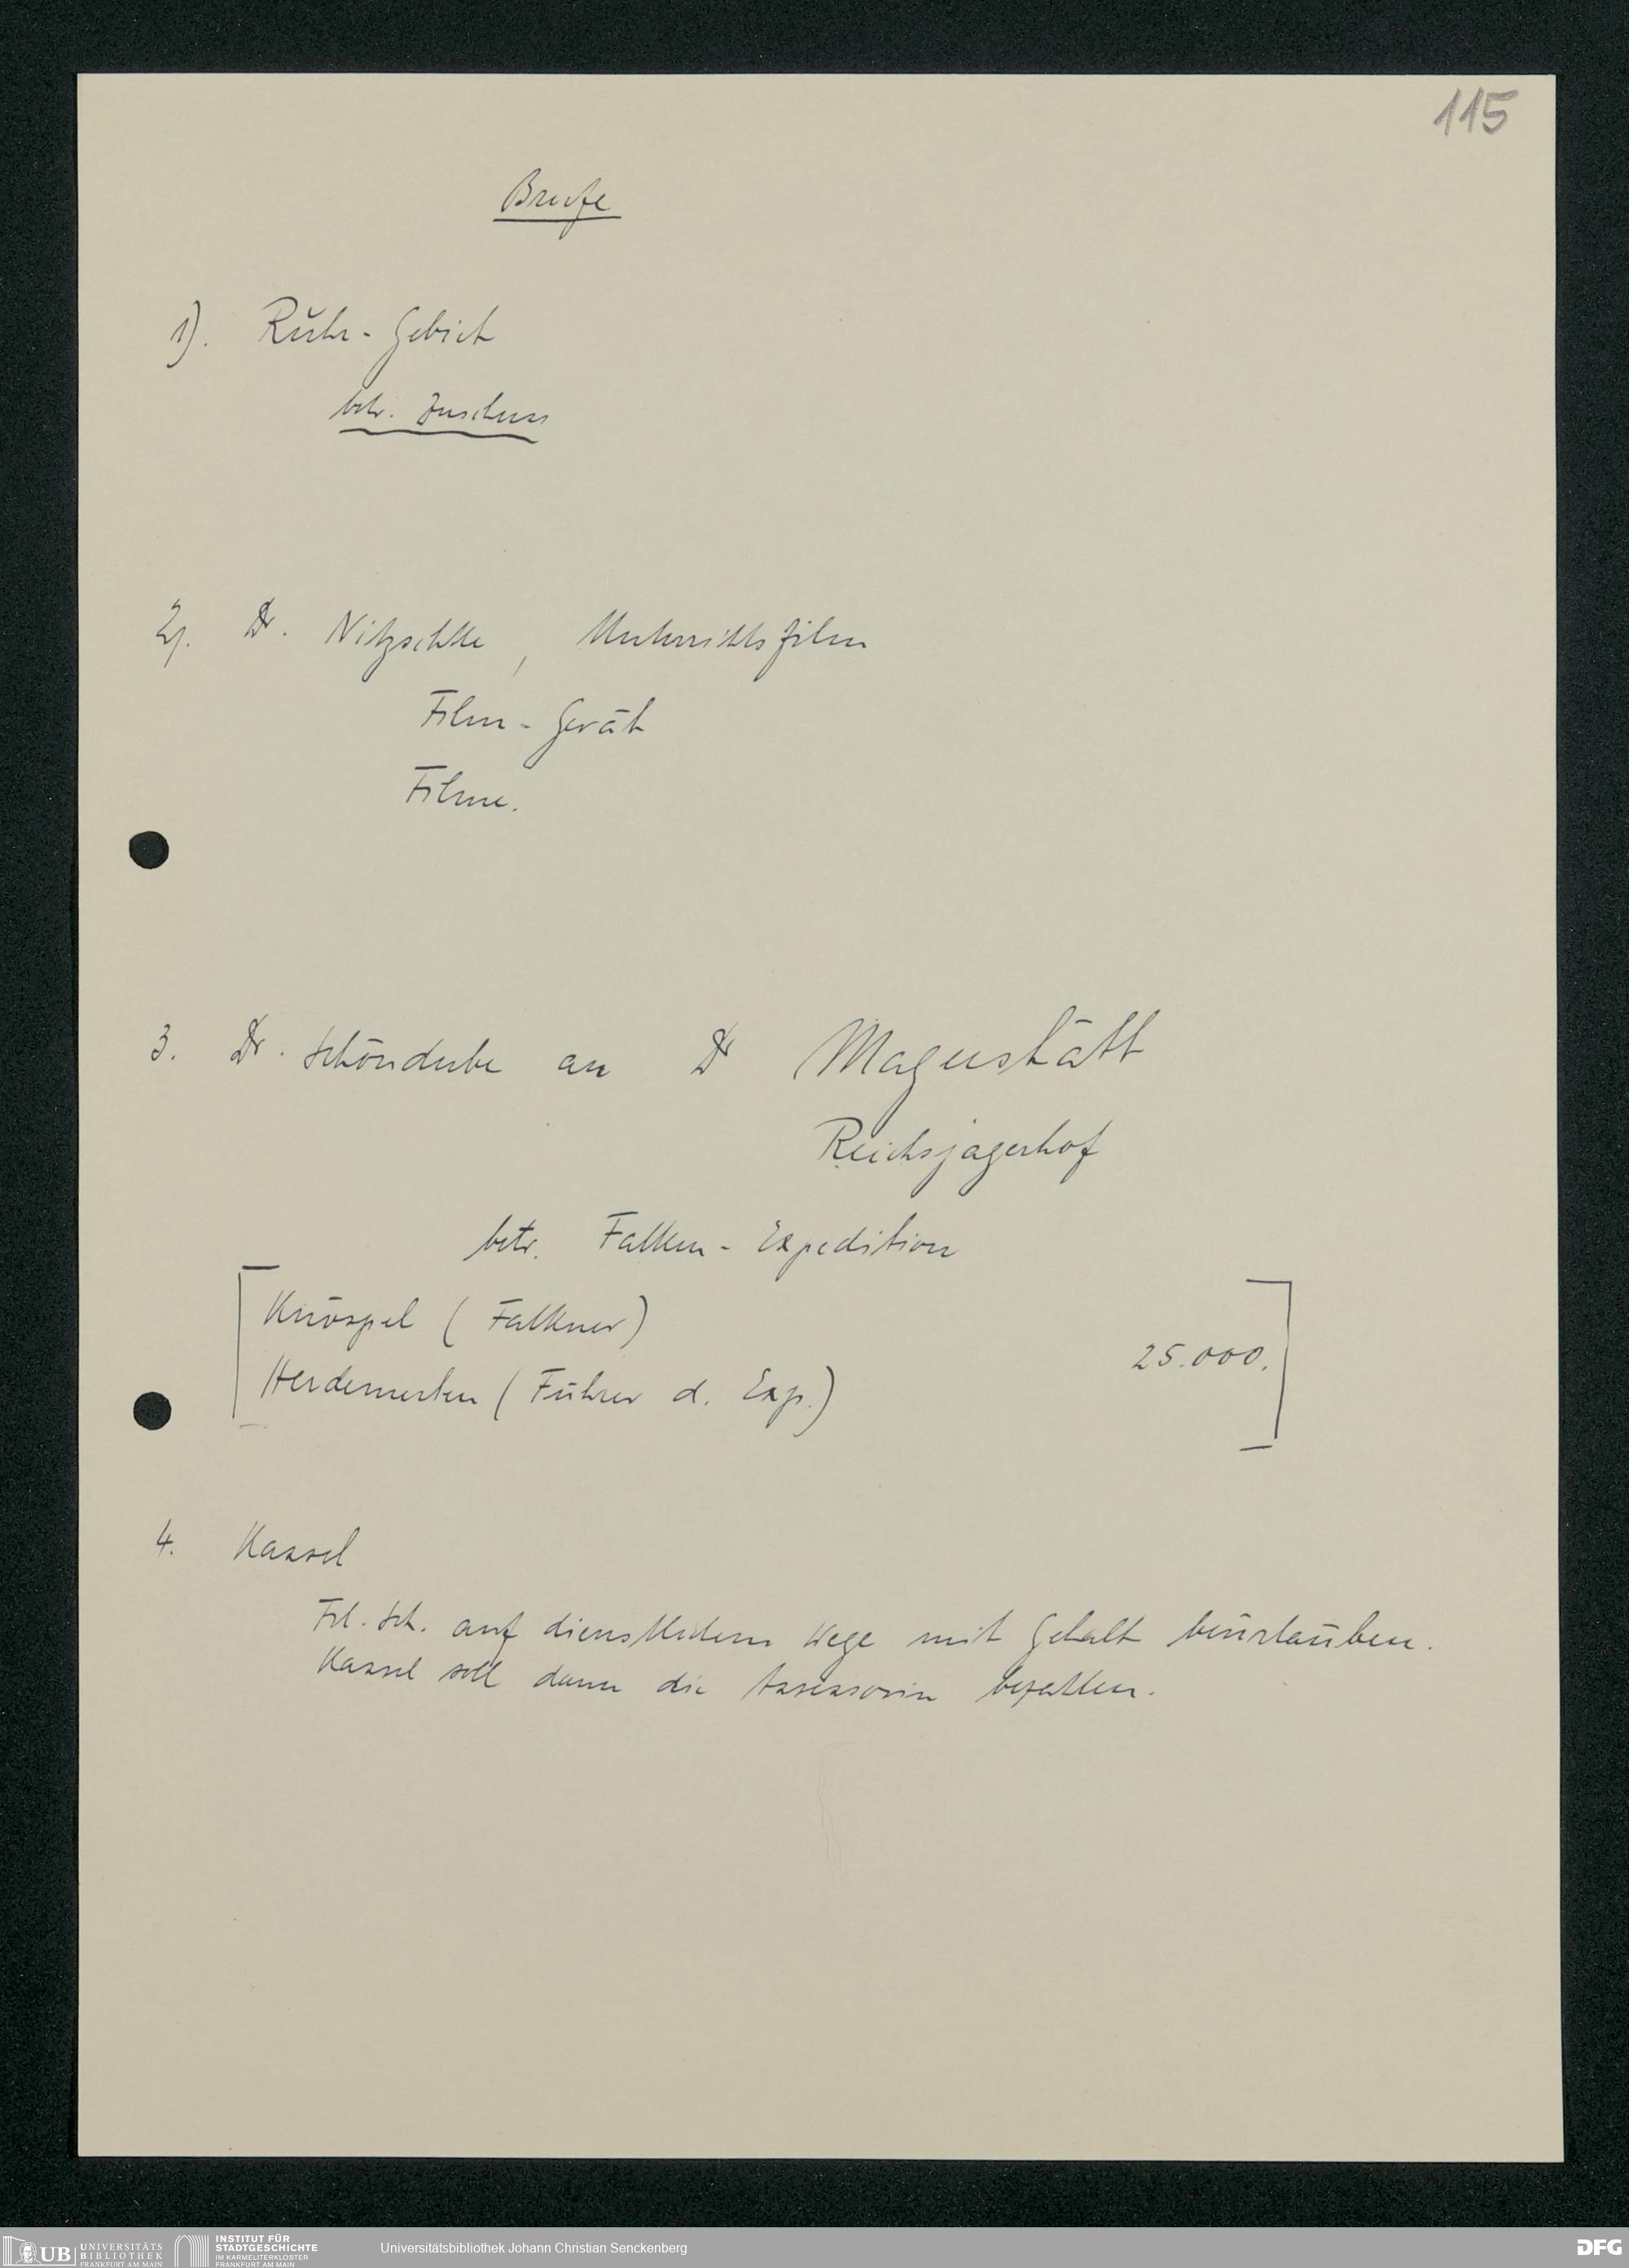 115
Briefe
1). Ruhr-Gebiet
betr. Zuschuss
2). Dr. Nitzschke, Unterrichtsfilm
Film-Gerät
Filme.
3. Dr. Schöndube an Dr Magerstätt
Reichsjägerhof
betr. Falken-Expedition
Knöspel (Falkner)
25.000.
Herdemerten (Führer d. Exp.)
4. Kassel
Frl. Sch. auf dienstlichem Wege mit Gehalt beurlauben.
Kassel soll dann die Assessorin bezahlen.
UB UNIVERSITÄTS
BIBLIOTHEK
FRANKFURT AM MAIN
INSTITUT FÜR
STADTGESCHICHTE
IM KARMELITERKLOSTER
FRANKFURT AM MAIN
Universitätsbibliothek Johann Christian Senckenberg
DFG